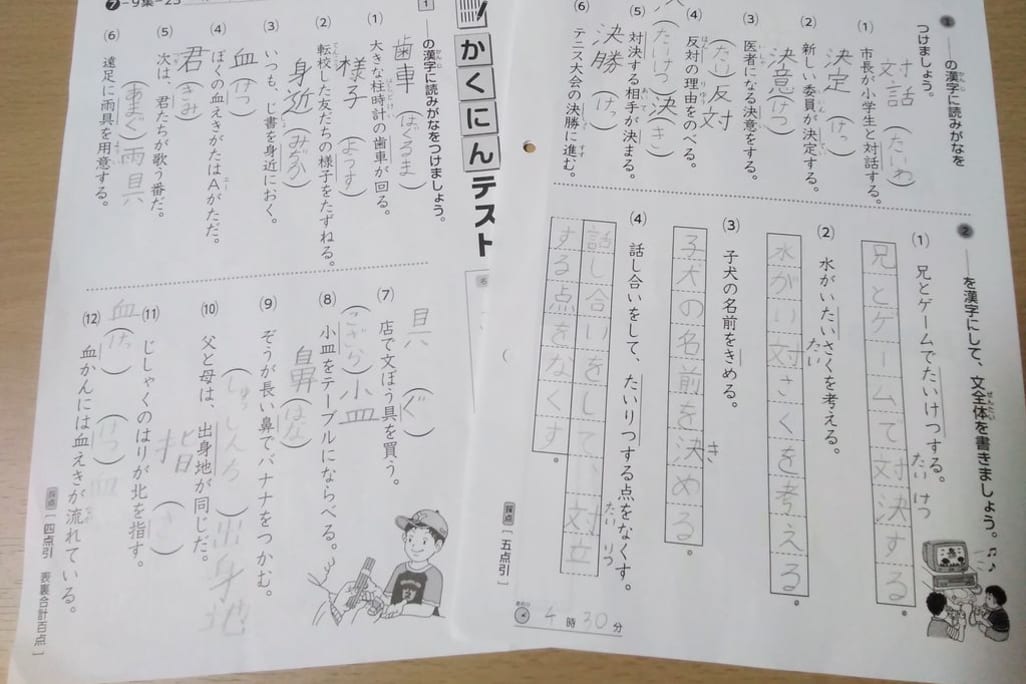 1 ――の漢字に読みがなを
つけましょう。
(1) 市長が小学生と対話する。
対話(たいわ)
(2) 新しい委員が決定する。
決定(けっ)
(3) 医者になる決意をする。
決意(けつ)
(4) 反対の理由をのべる。
(たい)反対
(5) 対決する相手が決まる。
(たいけつ)決(き)
(6) テニス大会の決勝に進む。
決勝(けっ)
2 ――を漢字にして、文全体を書きましょう。
(1) 兄とゲームでたいけつする。
兄とゲームで対決する。
たいけつ
(2) 水がいたいさくを考える。
水がい対さくを考える。
たい
(3) 子犬の名前をきめる。
子犬の名前を決める。
き
(4) 話し合いをして、たいりつする点をなくす。
話し合いをして、対立
する点をなくす。
たいりつ
採点[五点引]
4時30分
7-9集-25
かくにんテスト
名
1 ――の漢字に読みがなをつけましょう。
(1) 大きな柱時計の歯車が回る。
歯車(はぐるま)
(2) 転校した友だちの様子をたずねる。
様子(ようす)
(3) いつも、じ書を身近におく。
身近(みぢか)
(4) ぼくの血えきがたはAがただ。
血(けつ)
(5) 次は、君たちが歌う番だ。
君(きみ)
(6) 遠足に雨具を用意する。
(あまぐ)雨具
(7) 店で文ぼう具を買う。
具(ぐ)
(8) 小皿をテーブルにならべる。
(こざら)小皿
(9) ぞうが長い鼻でバナナをつかむ。
鼻(はな)
(10) 父と母は、出身地が同じだ。
出身地
(11) じしゃくのはりが北を指す。
指(さ)
(12) 血かんには血えきが流れている。
血(けっ)(けつ)血
採点[四点引 表裏合計百点]